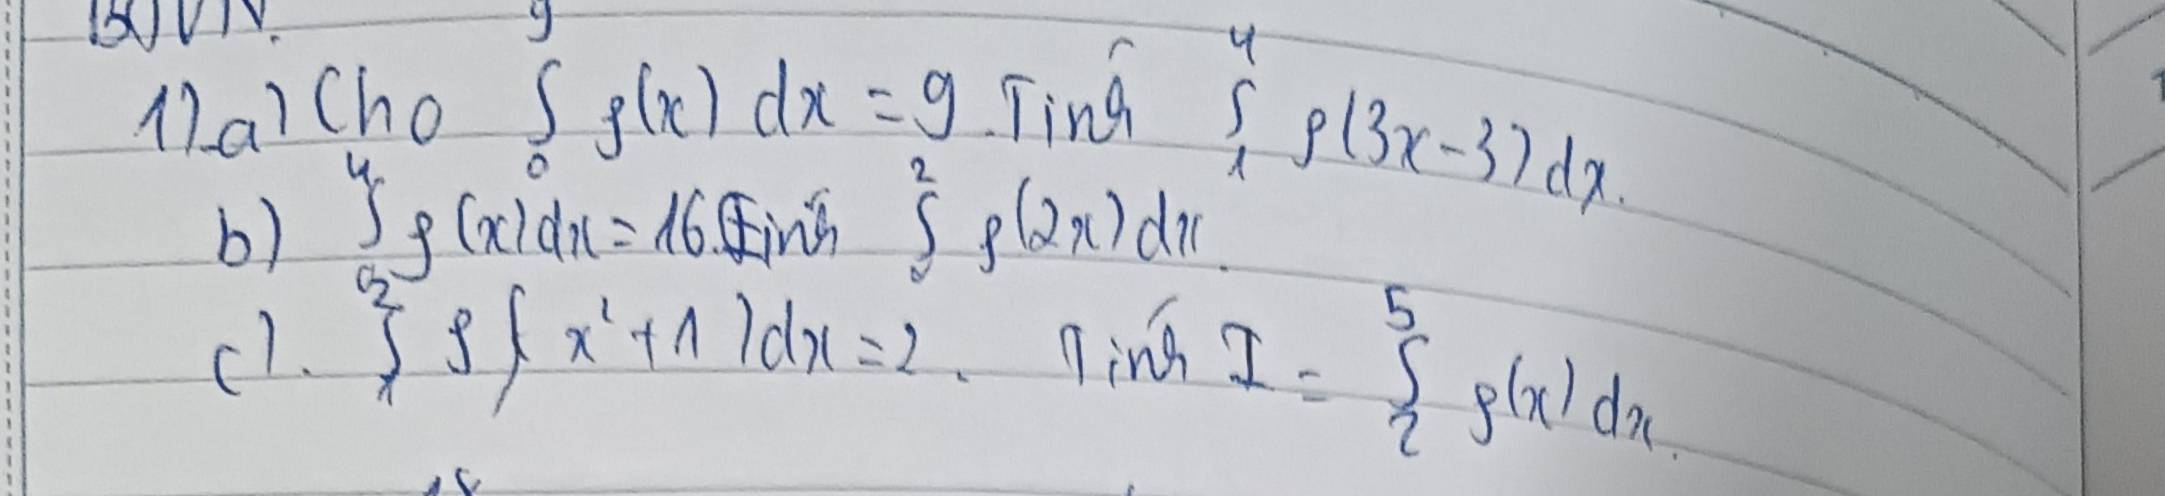 BTVN.
1).a) Cho ∫₀⁹ f(x) dx = 9. Tính ∫₁⁴ f(3x-3) dx.
b) ∫₀⁴ f(x)dx = 16. Tính ∫₀² f(2x) dx.
c). ∫₁² f(x²+1)dx = 2. Tính I = ∫₂⁵ f(x) dx.